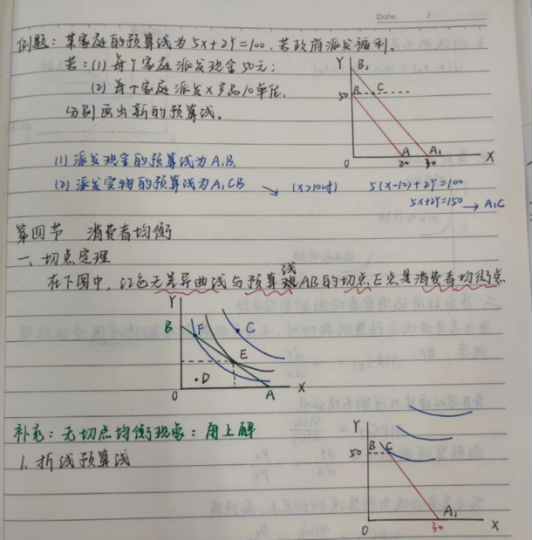 Date. /
例题：某家庭的预算线为5x+2Y=100，若政府派发福利。
若：(1) 每个家庭派发现金50元；
(2) 每个家庭派发X产品10单位。
分别画出新的预算线。
Y
B₁
50 B C
A A₁
0 20 30 X
(1) 派发现金的预算线为A₁B₁
(2) 派发实物的预算线为A₁CB ↘ (X>10时) 5(X-10)+2Y=100
5X+2Y=150 → A₁C
第四节 消费者均衡
一、切点定理
在下图中，红色无差异曲线与预算线AB的切点E点是消费者均衡点
Y
B F C
E
D
0 A X
补充：无切点均衡现象：角上解
1. 折线预算线
Y
B C
50
A₁
0 30 X